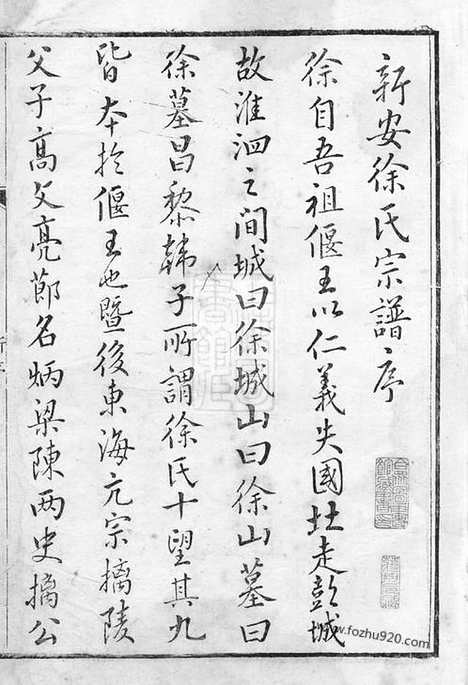 新安徐氏宗譜序
徐自吾祖偃王以仁義失國北走彭城
故淮泗之間城曰徐城山曰徐山墓曰
徐墓昌黎韓子所謂徐氏十望其九
皆本於偃王也暨後東海亢宗摛陵
父子高文亮節名炳梁陳兩史摛公
www.fozhu920.com